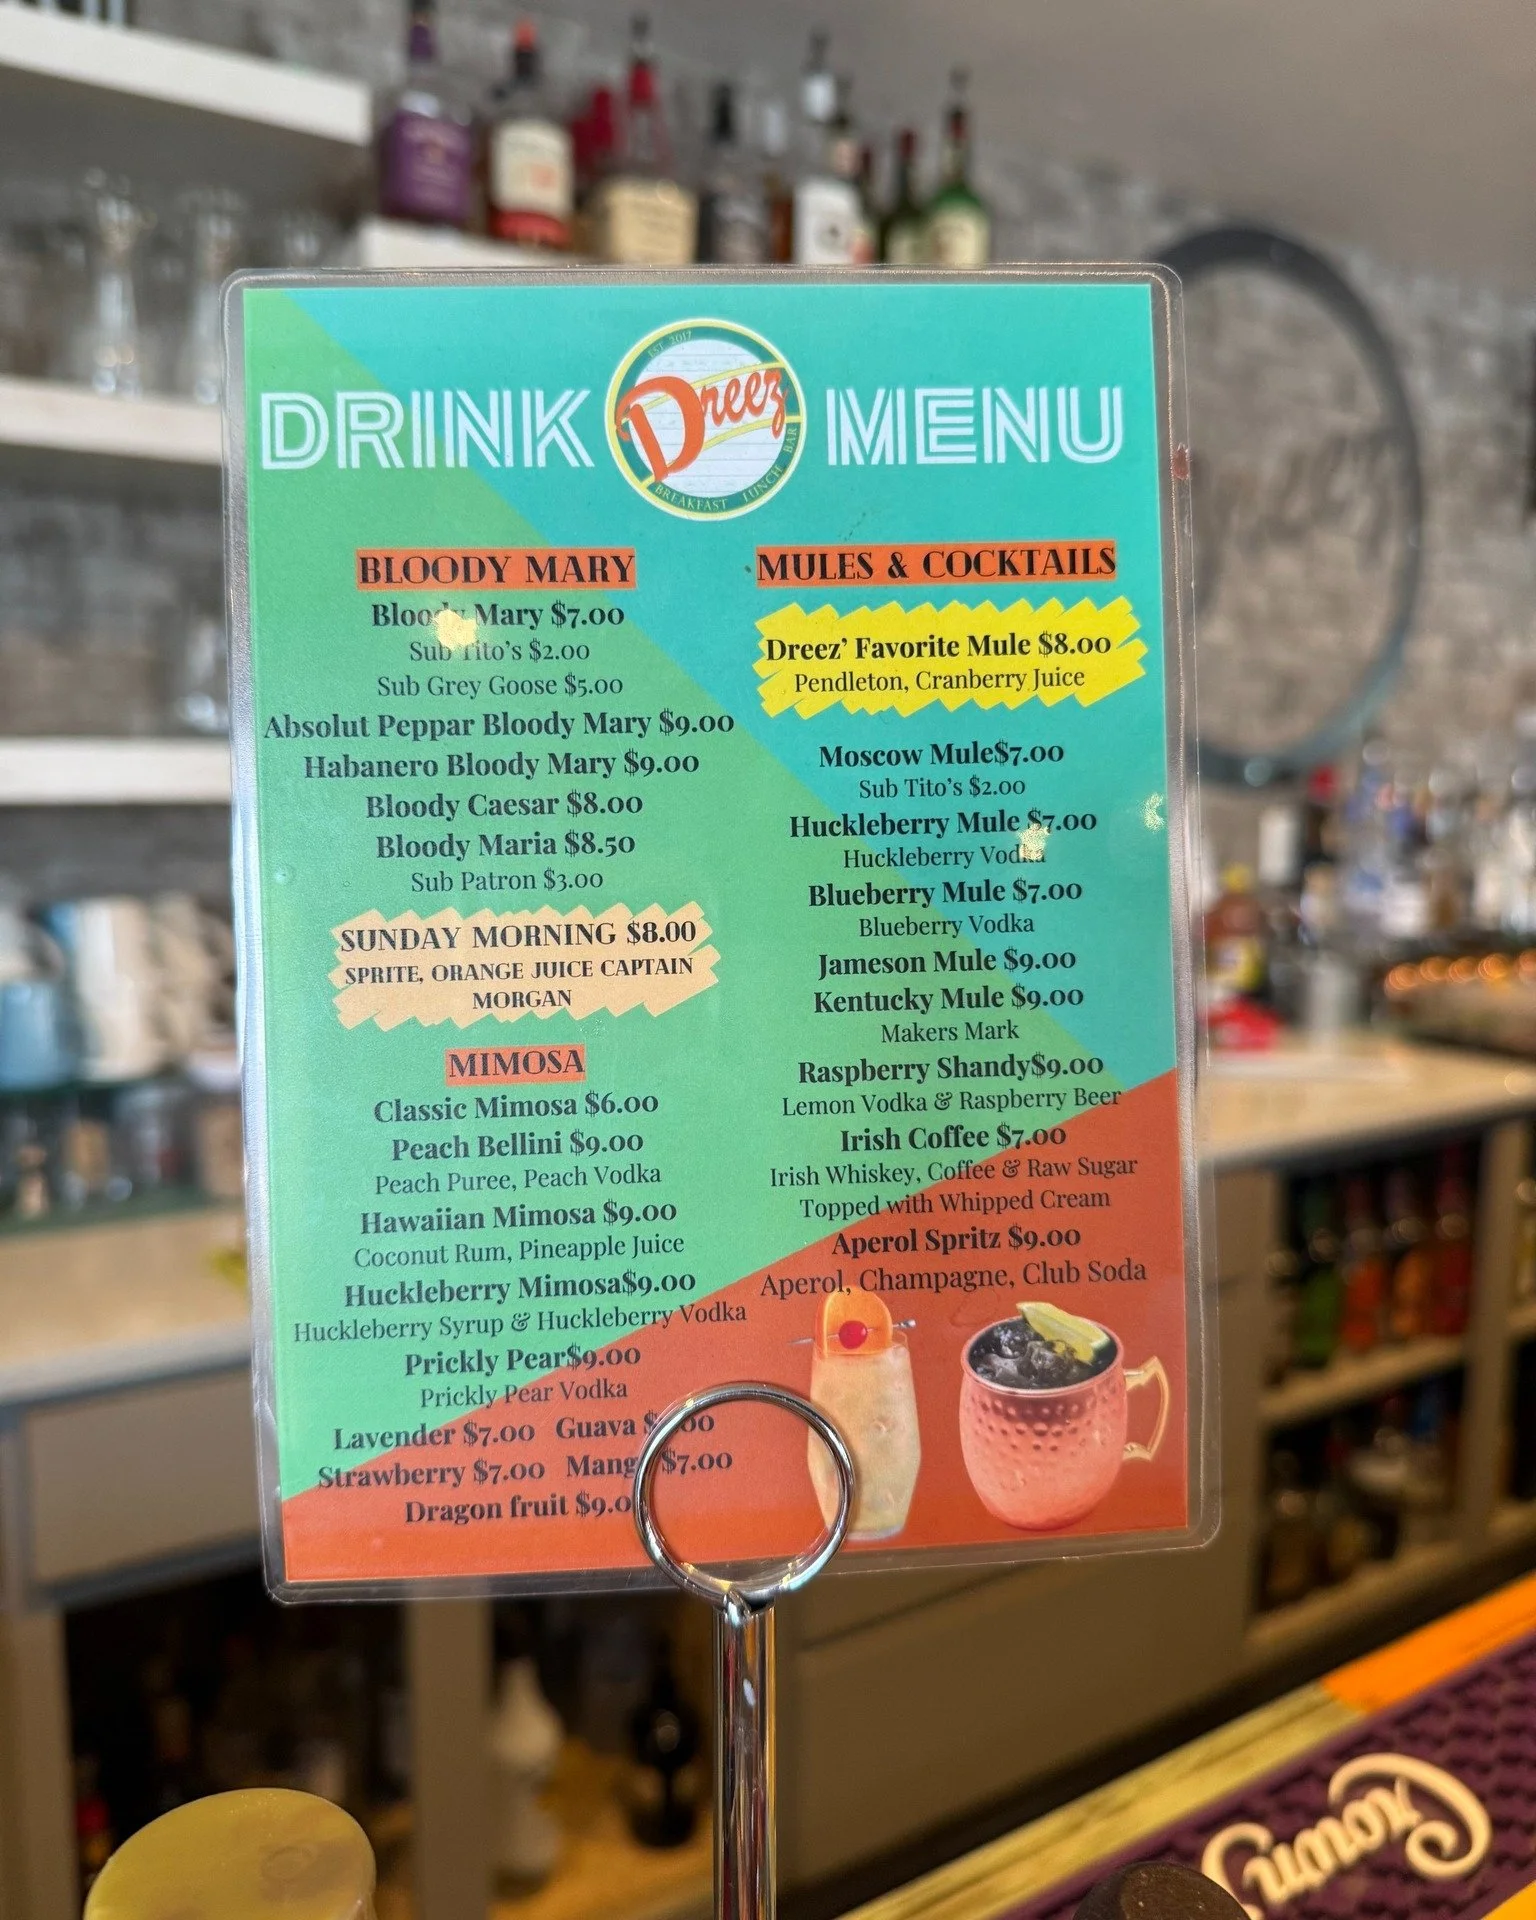 DRINK MENU
EST. 2017
Dreez
BREAKFAST LUNCH BAR
BLOODY MARY
Bloody Mary $7.00
Sub Tito's $2.00
Sub Grey Goose $5.00
Absolut Peppar Bloody Mary $9.00
Habanero Bloody Mary $9.00
Bloody Caesar $8.00
Bloody Maria $8.50
Sub Patron $3.00
SUNDAY MORNING $8.00
SPRITE, ORANGE JUICE CAPTAIN
MORGAN
MIMOSA
Classic Mimosa $6.00
Peach Bellini $9.00
Peach Puree, Peach Vodka
Hawaiian Mimosa $9.00
Coconut Rum, Pineapple Juice
Huckleberry Mimosa$9.00
Huckleberry Syrup & Huckleberry Vodka
Prickly Pear$9.00
Prickly Pear Vodka
Lavender $7.00 Guava
Strawberry $7.00 Mang $7.00
Dragon fruit $9.0
MULES & COCKTAILS
Dreez' Favorite Mule $8.00
Pendleton, Cranberry Juice
Moscow Mule$7.00
Sub Tito's $2.00
Huckleberry Mule $7.00
Huckleberry Vodka
Blueberry Mule $7.00
Blueberry Vodka
Jameson Mule $9.00
Kentucky Mule $9.00
Makers Mark
Raspberry Shandy$9.00
Lemon Vodka & Raspberry Beer
Irish Coffee $7.00
Irish Whiskey, Coffee & Raw Sugar
Topped with Whipped Cream
Aperol Spritz $9.00
Aperol, Champagne, Club Soda
Crown